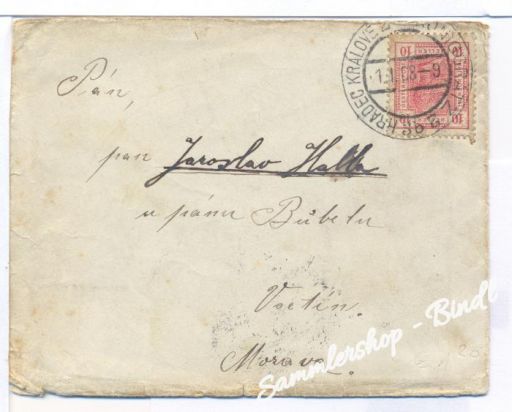 Pán,
pan Jaroslav Halla
u pánu Bubetu
Vsetín.
Morava.
HRADEC KRÁLOVÉ 2
10 10
Sammlershop - Bindl